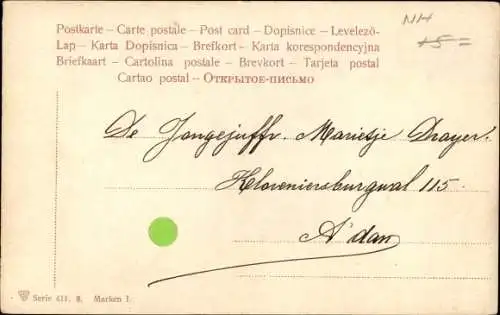 Postkarte – Carte postale – Post card – Dopisnice – Levelező-
Lap – Karta Dopisnica – Brefkort – Karta korespondencyjna
Briefkaart – Cartolina postale – Brevkort – Tarjeta postal
Cartao postal – Открытое-письмо
NH
+5=
De Jongejuffr. Marietje Drayer.
Kloveniersburgwal 115.
A'dam
Serie 411. 8. Marken I.